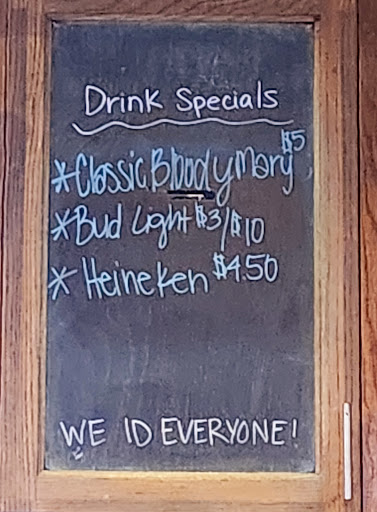 Drink Specials
*Classic Bloody Mary $5
*Bud Light $3/$10
* Heineken $4.50
WE ID EVERYONE!